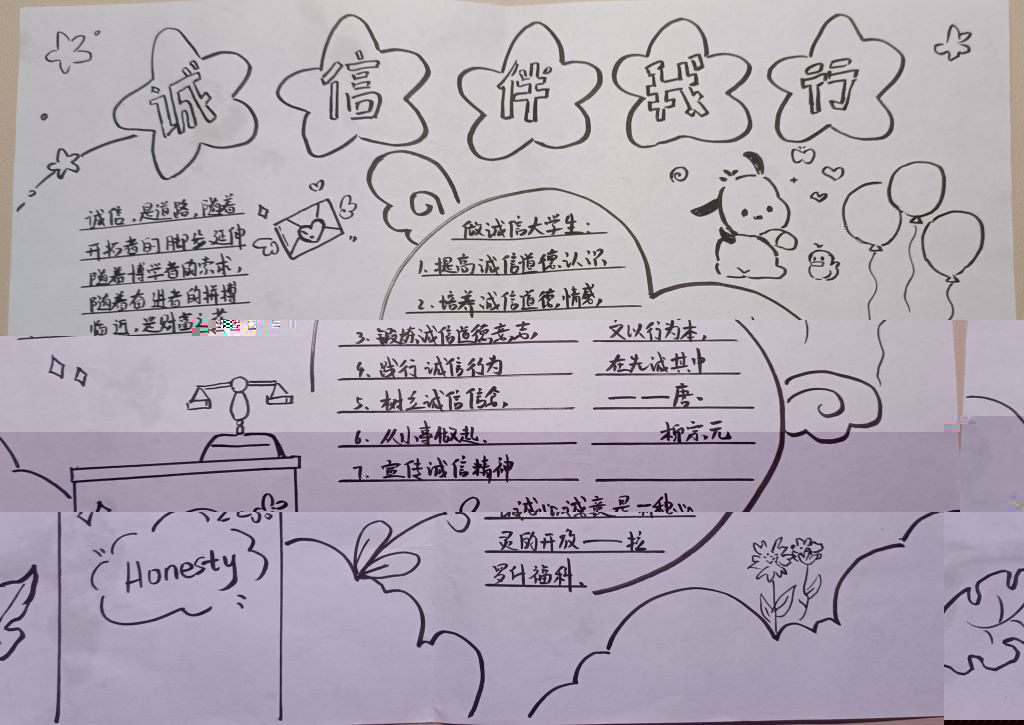 诚信伴我行
诚信,是道路,随着
开拓者的脚步延伸
随着博学者的索求,
随着奋进者的拼搏
临近,是财富之
做诚信大学生:
1.提高诚信道德认识
2.培养诚信道德情感,
3.锻炼诚信道德意志,
4.践行诚信行为
5.树立诚信信念,
6.从小事做起.
7.宣传诚信精神
文以行为本,
在先诚其中
——唐.
柳宗元
诚衷是一种心
灵的开放——拉
罗什福科.
Honesty